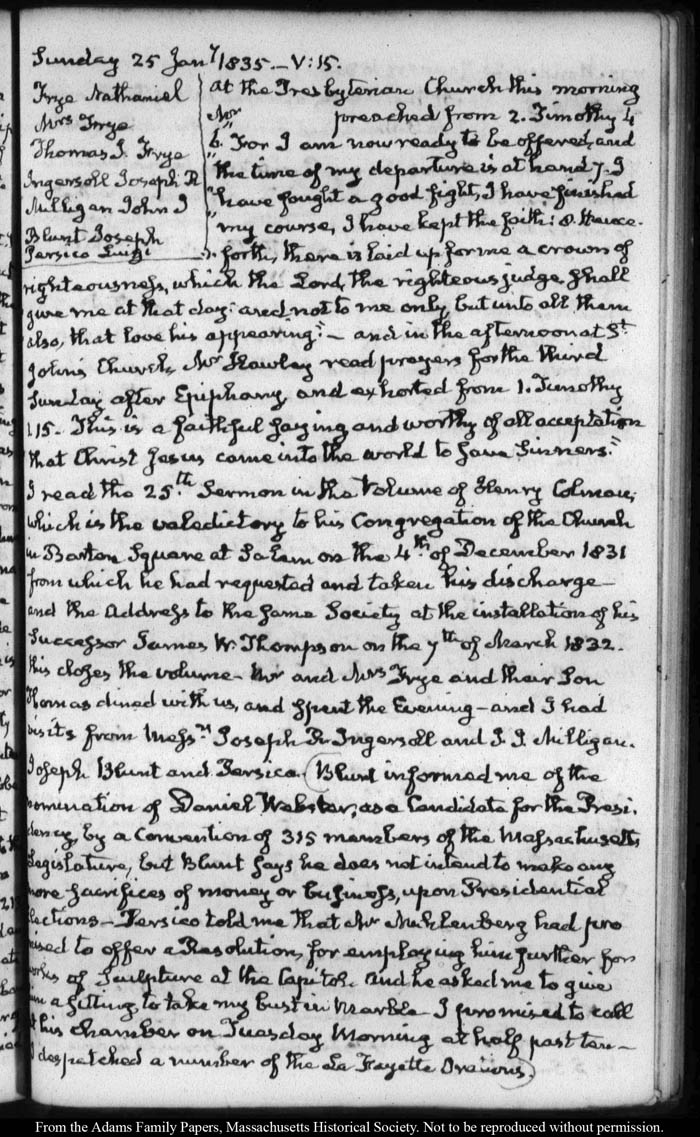 Sunday 25 Jany 1835. — V:15.
Frye Nathaniel
Mrs Frye
Thomas J. Frye
Ingersoll Joseph R
Milligan John J
Blunt Joseph
Persico Luigi
At the Presbyterian Church this morning
Mr preached from 2. Timothy 4
6. "For I am now ready to be offered, and
"the time of my departure is at hand 7. I
"have fought a good fight, I have finished
"my course, I have kept the faith: 8. Hence-
forth, there is laid up for me a crown of
righteousness, which the Lord, the righteous judge shall
give me at that day: and not to me only, but unto all them
also, that love his appearing." — and in the afternoon at St.
John's Church, Mr Hawley read prayers for the third
Sunday after Epiphany and exhorted from 1. Timothy
1.15. This is a faithful saying and worthy of all acceptation
that Christ Jesus came into the world to save Sinners."
I read the 25th. Sermon in the Volume of Henry Colman;
which is the valedictory to his Congregation of the Church
in Barton Square at Salem on the 4th. of December 1831
from which he had requested and taken his discharge —
and the Address to the same Society at the installation of his
Successor James W. Thompson on the 7th of March 1832.
this closes the volume — Mr and Mrs Frye and their Son
Thomas dined with us, and spent the Evening — and I had
visits from Messrs Joseph R. Ingersoll and J. J. Milligan.
Joseph Blunt and Persico. (Blunt informed me of the
nomination of Daniel Webster, as a Candidate for the Presi-
dency, by a Convention of 315 members of the Massachusetts
Legislature, but Blunt says he does not intend to make any
more sacrifices of money or business, upon Presidential
Elections — Persico told me that Mr Muhlenberg had pro
mised to offer a Resolution, for employing him further for
works of Sculpture at the Capitol. And he asked me to give
him a sitting to take my bust in Marble — I promised to call
at his chamber on Tuesday Morning at half past ten —
I despatched a number of the La Fayette Orations.)
From the Adams Family Papers, Massachusetts Historical Society. Not to be reproduced without permission.